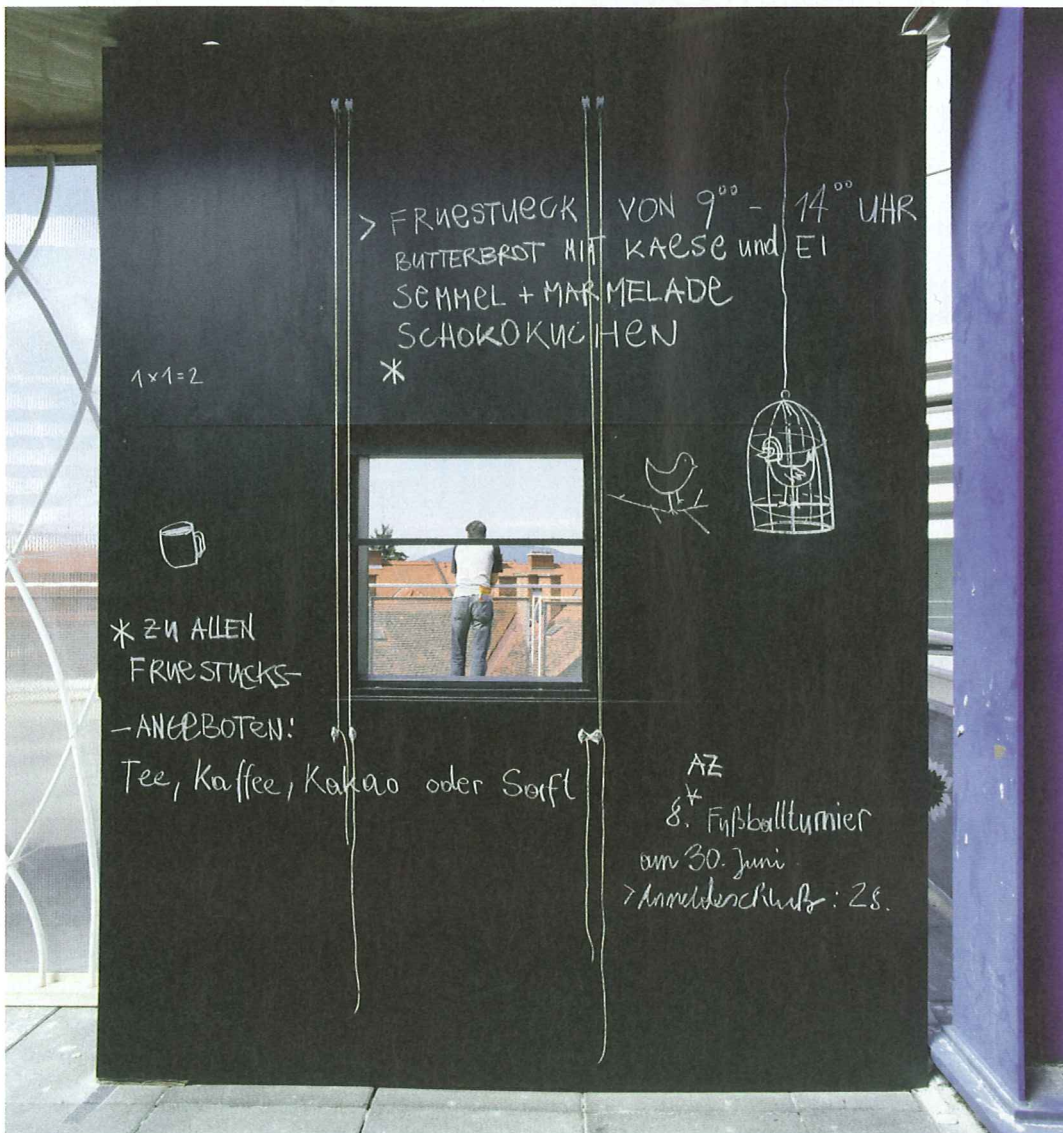 > FRUESTUECK VON 9⁰⁰ - 14⁰⁰ UHR
BUTTERBROT MIT KAESE und EI
SEMMEL + MARMELADE
SCHOKOKUCHEN
*
1x1=2
* ZU ALLEN
FRUESTUCKS-
-ANGEBOTEN:
Tee, Kaffee, Kakao oder Saft
AZ
8. Fußballturnier
am 30. Juni
> Anmeldeschluß: 28.